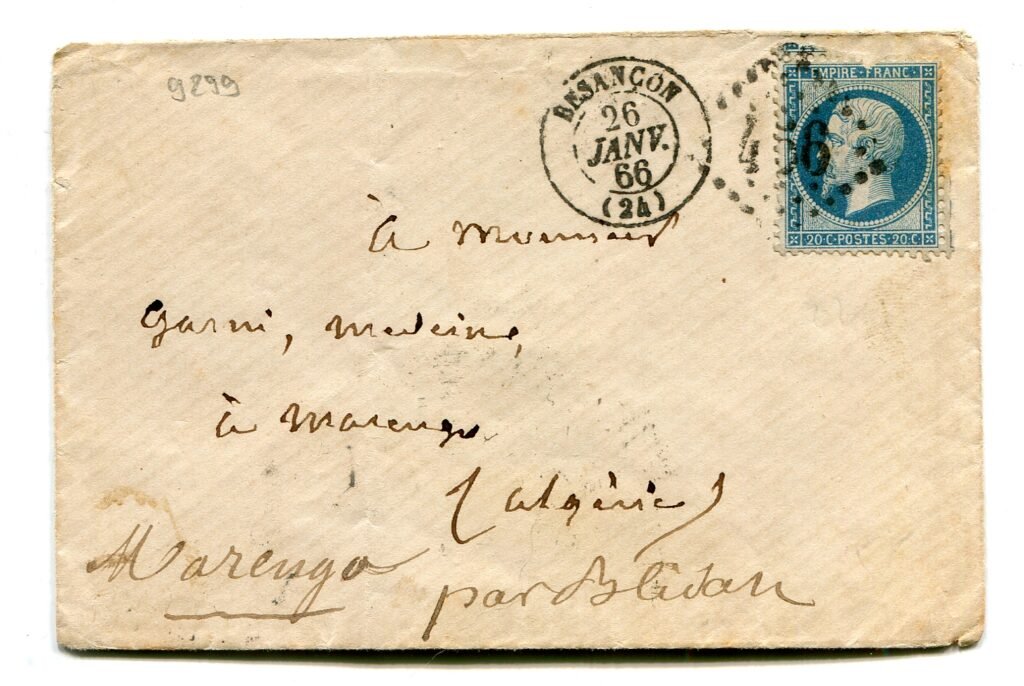 9299
BESANÇON
26
JANV.
66
(24)
EMPIRE·FRANC
20·C·POSTES·20·C
à Monsieur
garni, medecine,
à Marengo
(algérie)
Marengo
par Blidah